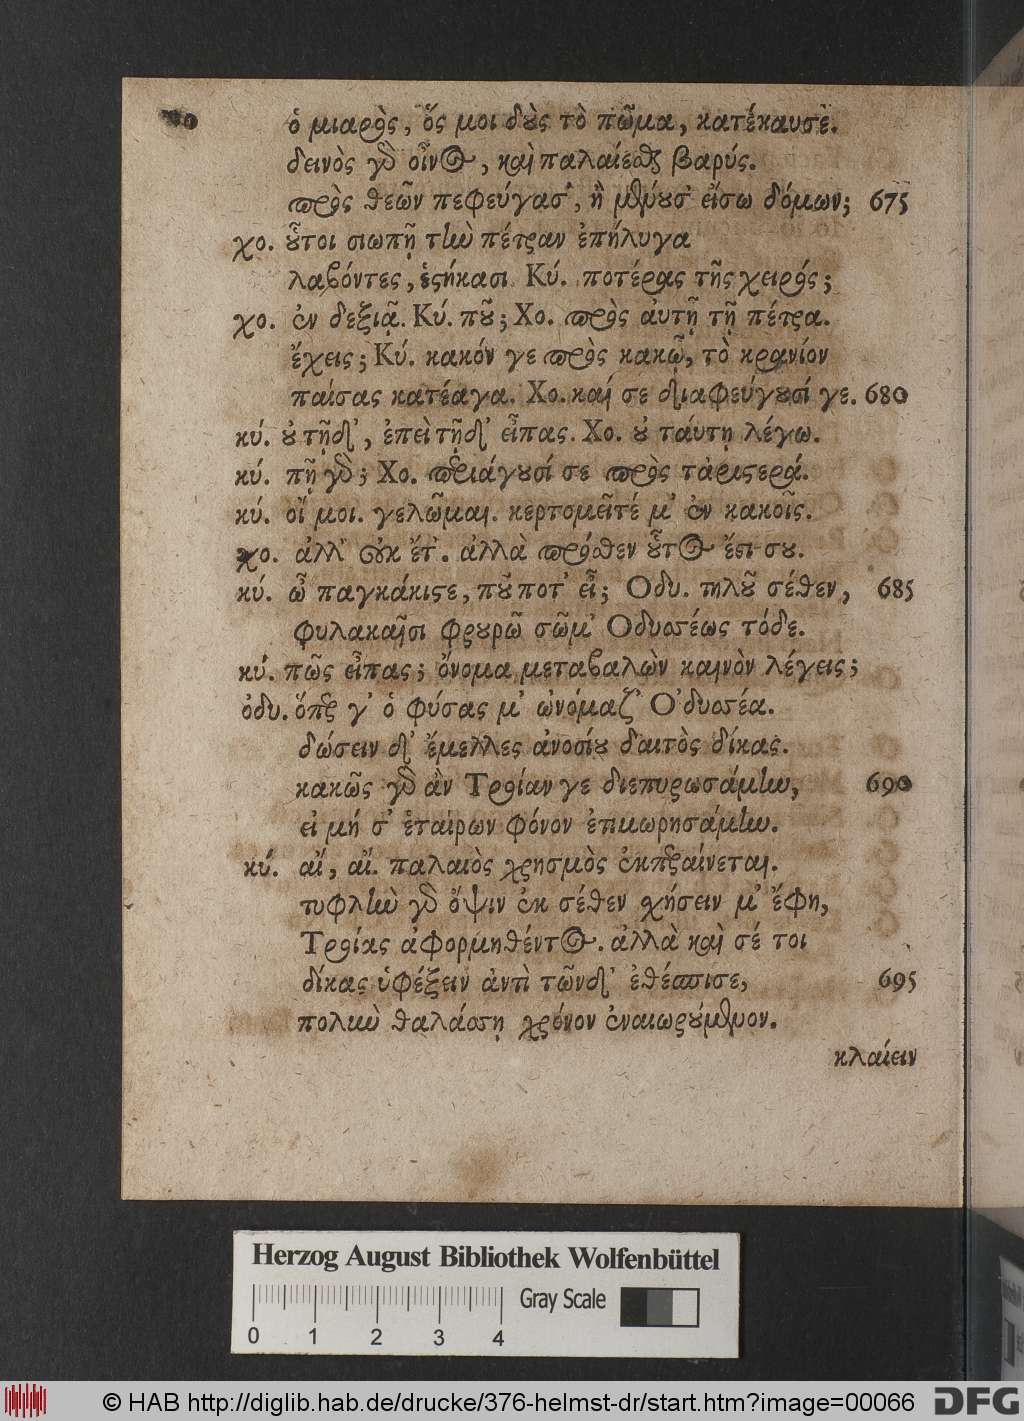 ὁ μιαρὸς, ὅς μοι δοὺς τὸ πῶμα, κατέκαυσε.
δεινὸς γὰρ οἶνος, καὶ παλαίεσθαι βαρύς.
πρὸς θεῶν πεφεύγασ', ἢ μένουσ' εἴσω δόμων; 675
χο. οὗτοι σιωπῇ τὴν πέτραν ἐπήλυγα
λαβόντες, ἑστήκασι Κύ. ποτέρας τῆς χειρός;
χο. ἐν δεξιᾷ. Κύ. ποῦ; Χο. πρὸς αὐτῇ τῇ πέτρα.
ἔχεις; Κύ. κακόν γε πρὸς κακῷ, τὸ κρανίον
παίσας κατέαγα. Χο. καί σε διαφεύγουσί γε. 680
κύ. οὐ τῇδ', ἐπεὶ τῇδ' εἶπας. Χο. οὐ ταύτῃ λέγω.
κύ. πῇ γάρ; Χο. περιάγουσί σε πρὸς τἀριστερά.
κύ. οἴ μοι. γελῶμαι. κερτομεῖτέ μ' ἐν κακοῖς.
χο. ἀλλ' οὐκ ἔτ'. ἀλλὰ πρόσθεν οὗτος ἔστι σου.
κύ. ὦ παγκάκιστε, ποῦ ποτ' εἶ; Οδυ. τηλοῦ σέθεν, 685
φυλακαῖσι φρουρῶ σῶμ' Οδυσσέως τόδε.
κύ. πῶς εἶπας; ὄνομα μεταβαλὼν καινὸν λέγεις;
ὀδυ. ὅπερ γ' ὁ φύσας μ' ὠνόμαζ' Ὀδυσσέα.
δώσειν δ' ἔμελλες ἀνοσίου δαιτὸς δίκας.
κακῶς γὰρ ἂν Τροίαν γε διεπυρωσάμην, 690
εἰ μή σ' ἑταίρων φόνον ἐτιμωρησάμην.
κύ. αἴ, αἴ. παλαιὸς χρησμὸς ἐκπεραίνεται.
τυφλὴν γὰρ ὄψιν ἐκ σέθεν σχήσειν μ' ἔφη,
Τροίας ἀφορμηθέντος. ἀλλὰ καὶ σέ τοι
δίκας ὑφέξειν ἀντὶ τῶνδ' ἐθέσπισε, 695
πολὺν θαλάσσῃ χρόνον ἐναιωρούμενον.
κλαίειν
Herzog August Bibliothek Wolfenbüttel
0 1 2 3 4 Gray Scale
© HAB http://diglib.hab.de/drucke/376-helmst-dr/start.htm?image=00066 DFG